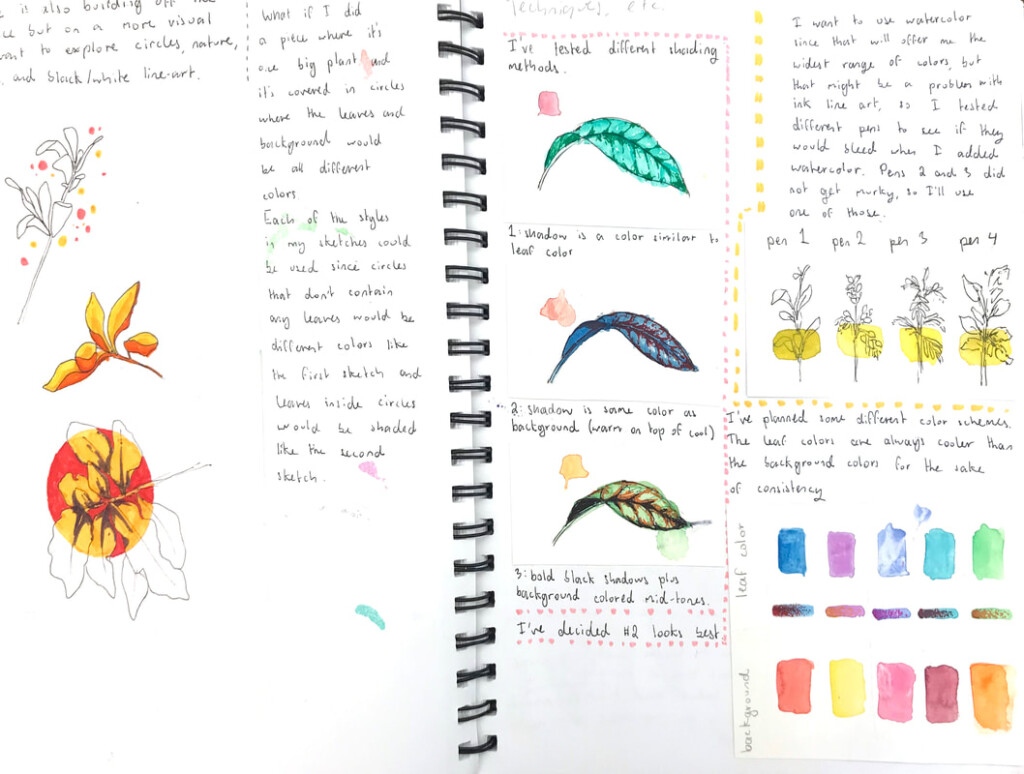 is also building off
but on a more visual
want to explore circles, nature,
and black/white line-art.
What if I did
a piece where it's
one big plant and
it's covered in circles
where the leaves and
background would
be all different
colors.
Each of the styles
in my sketches could
be used since circles
that don't contain
any leaves would be
different colors like
the first sketch and
leaves inside circles
would be shaded
like the second
sketch.
Techniques, etc.
I've tested different shading
methods.
1: shadow is a color similar to
leaf color
2: shadow is same color as
background (warm on top of cool)
3: bold black shadows plus
background colored mid-tones.
I've decided #2 looks best
I want to use watercolor
since that will offer me the
widest range of colors, but
that might be a problem with
ink line art, so I tested
different pens to see if they
would bleed when I added
watercolor. Pens 2 and 3 did
not get murky, so I'll use
one of those.
pen 1 pen 2 pen 3 pen 4
I've planned some different color schemes.
The leaf colors are always cooler than
the background colors for the sake
of consistency
leaf color
background